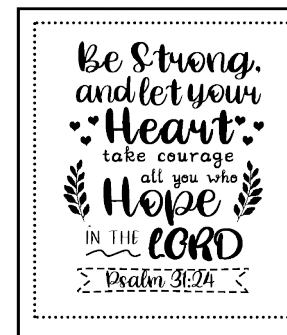 Be Strong,
and let your
Heart
take courage
all you who
Hope
IN THE LORD
Psalm 31:24